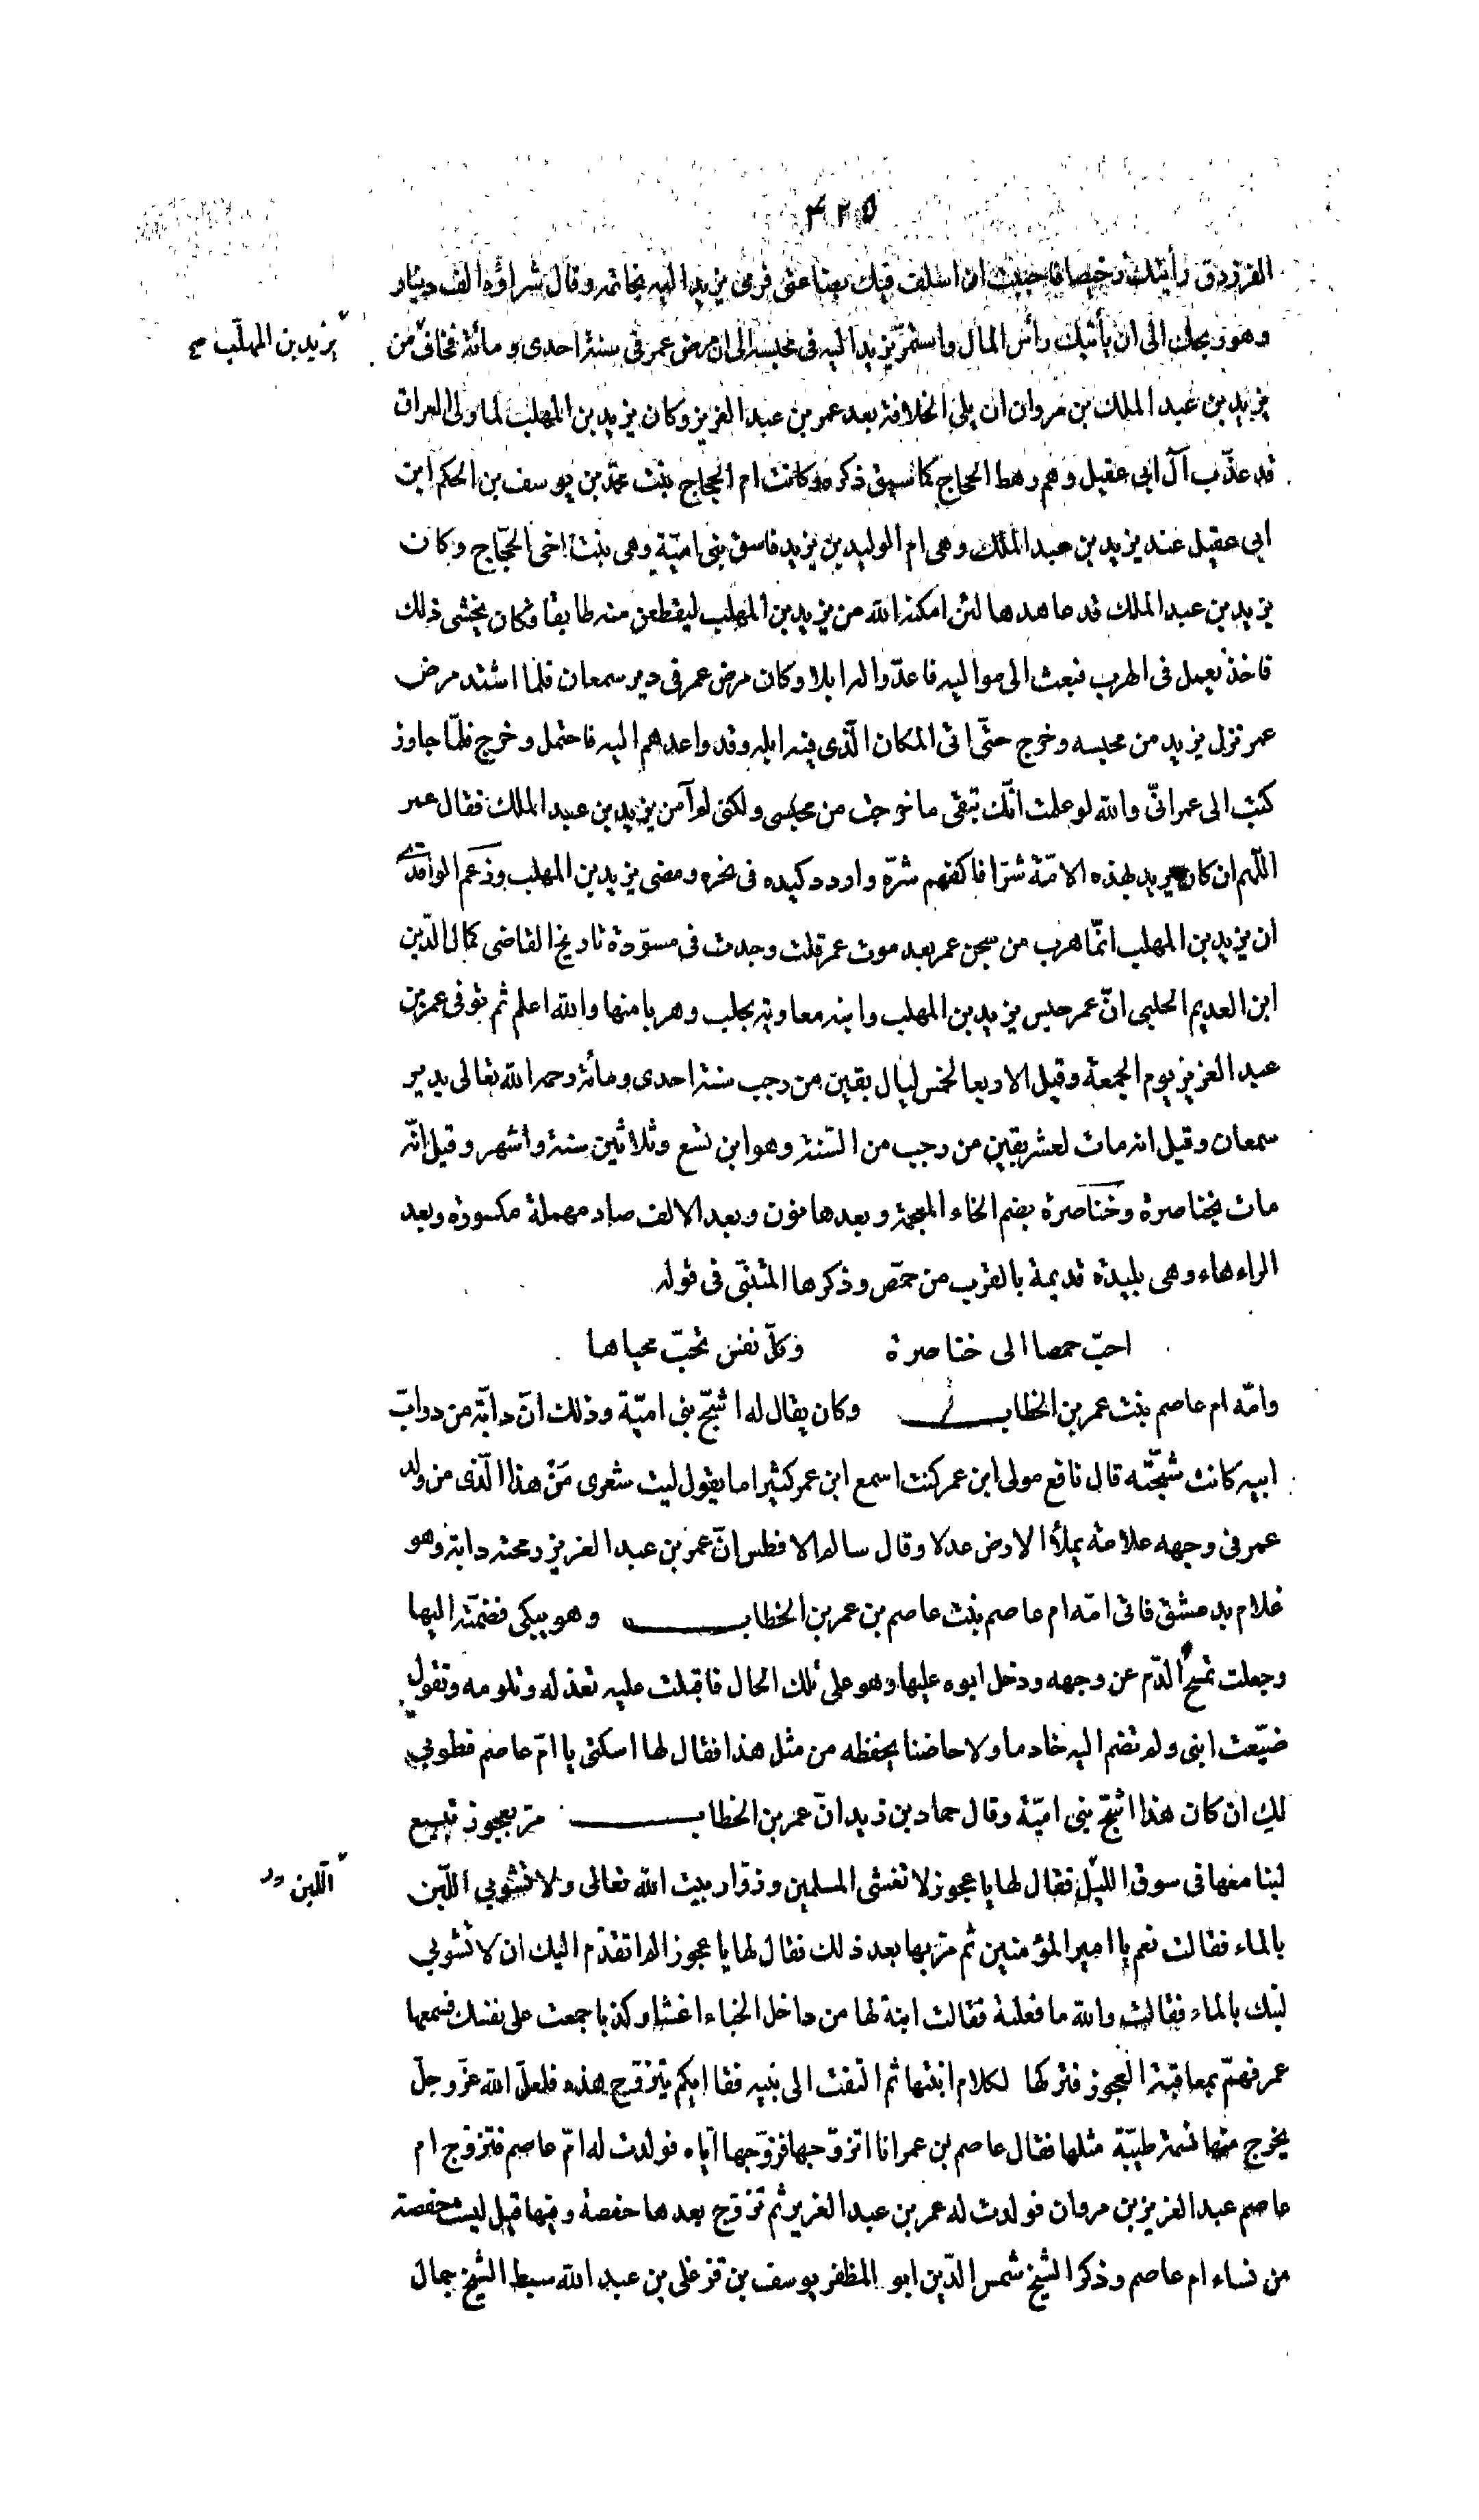 ٤٢٥
الفرزدق رأيتك رخيصا فاحببت ان اسلف فيك بضاعتى فرمى يزيد اليه بخاتمه وقال شراؤه الف دينار
وهو ربحك الى ان يأتيك رأس المال واستمرّ يزيد اليه فى محبسه الى ان مرض عمر فى سنة احدى و مائة فخاف من
يزيد بن المهلّب صح
يزيد بن عبد الملك بن مروان ان يلى الخلافة بعد عمر بن عبد العزيز وكان يزيد بن المهلب لما ولى العراق
قد عذّب آل ابى عقيل وهم رهط الحجاج كما سبق ذكره وكانت ام الحجاج بنت محمّد بن يوسف بن الحكم ابن
ابى عقيل عند يزيد بن عبد الملك وهى ام الوليد بن يزيد فاسق بنى اميّة وهى بنت اخى الحجّاج وكان
يزيد بن عبد الملك قد عاهدها لئن امكنه الله من يزيد بن المهلب ليقطعن منه طابقا فكان يخشى ذلك
فاخذ يعمل فى الهرب فبعث الى مواليه فاعدّوا له ابلا وكان مرض عمر فى دير سمعان فلما اشتد مرض
عمر نزل يزيد من محبسه وخرج حتّى اتى المكان الّذى فيه ابله وقد واعدهم اليه فاحتمل وخرج فلمّا جاوز
كتب الى عمر انّى والله لو علمت انّك تبقى ما خرجت من محبسى ولكنى لم آمن يزيد بن عبد الملك فقال عمر
اللّهم ان كان يريد بهذه الامّة شرّا فاكفهم شرّه واردد كيده فى نحره ومضى يزيد بن المهلب وزعم الواقدى
ان يزيد بن المهلب انّما هرب من سجن عمر بعد موت عمر قلت وجدت فى مسوّدة تاريخ القاضى كمال الدّين
ابن العديم الحلبى انّ عمر حبس يزيد بن المهلب وابنه معاوية بحلب وهربا منها والله اعلم ثم توفى عمر بن
عبد العزيز يوم الجمعة وقيل الاربعا لخمس ليال بقين من رجب سنة احدى ومائة رحمه الله تعالى بدير
سمعان وقيل انه مات لعشر بقين من رجب من السّنة وهو ابن تسع وثلاثين سنة واشهر وقيل انّه
مات بخناصرة وخناصرة بضم الخاء المعجمة وبعدها نون وبعد الالف صاد مهملة مكسورة وبعد
الراء هاء وهى بليدة قديمة بالقرب من حمص وذكرها المتنبّى فى قوله
احبّ حمصا الى خناصرة وكلّ نفس تحبّ محياها
وامّه ام عاصم بنت عمر بن الخطاب وكان يقال له اشجّ بنى اميّة وذلك انّ دابّة من دوابّ
ابيه كانت شجّته قال نافع مولى ابن عمر كنت اسمع ابن عمر كثيرا ما يقول ليت شعرى مَنْ هذا الّذى من ولد
عمر فى وجهه علامة يملأ الارض عدلا وقال سالم الافطس انّ عمر بن عبد العزيز رمحته دابة وهو
غلام بدمشق فاتى امّه ام عاصم بنت عاصم بن عمر بن الخطاب وهو يبكى فضمّته اليها
وجعلت تمسح الدّم عن وجهه ودخل ابوه عليها وهو على تلك الحال فاقبلت عليه تعذله وتلومه وتقول
ضيّعت ابنى ولم تضم اليه خادما ولا حاضنا يحفظه من مثل هذا فقال لها اسكتى يا امّ عاصم فطوبى
لكِ ان كان هذا اشجّ بنى اميّة وقال حماد بن زيد انّ عمر بن الخطاب مرّ بعجوز تبيع
لبنا معها فى سوق الليل فقال لها يا عجوز لا تغشى المسلمين وزوّار بيت الله تعالى ولا تشوبى اللّبن
اللّبن
بالماء فقالت نعم يا امير المؤمنين ثم مرّ بها بعد ذلك فقال لها يا عجوز الم اتقدّم اليك ان لا تشوبى
لبنك بالماء فقالت والله ما فعلت فقالت ابنة لها من داخل الخباء اغشا وكذبا جمعت على نفسك فسمعها
عمر فهمّ بمعاقبة العجوز فتركها لكلام ابنتها ثم التفت الى بنيه فقا ايكم يتزوّج هذه فلعلّ الله عزّ وجلّ
يخرج منها نسمة طيّبة مثلها فقال عاصم بن عمر انا اتزوّجها فزوّجها ايّاه فولدت له امّ عاصم فتزوّج ام
عاصم عبد العزيز بن مروان فولدت له عمر بن عبد العزيز ثم تزوّج بعدها حفصة وفيها قيل ليست حفصة
من نساء ام عاصم وذكر الشيخ شمس الدّين ابو المظفر يوسف بن قزغلى بن عبد الله سبط الشيخ جمال